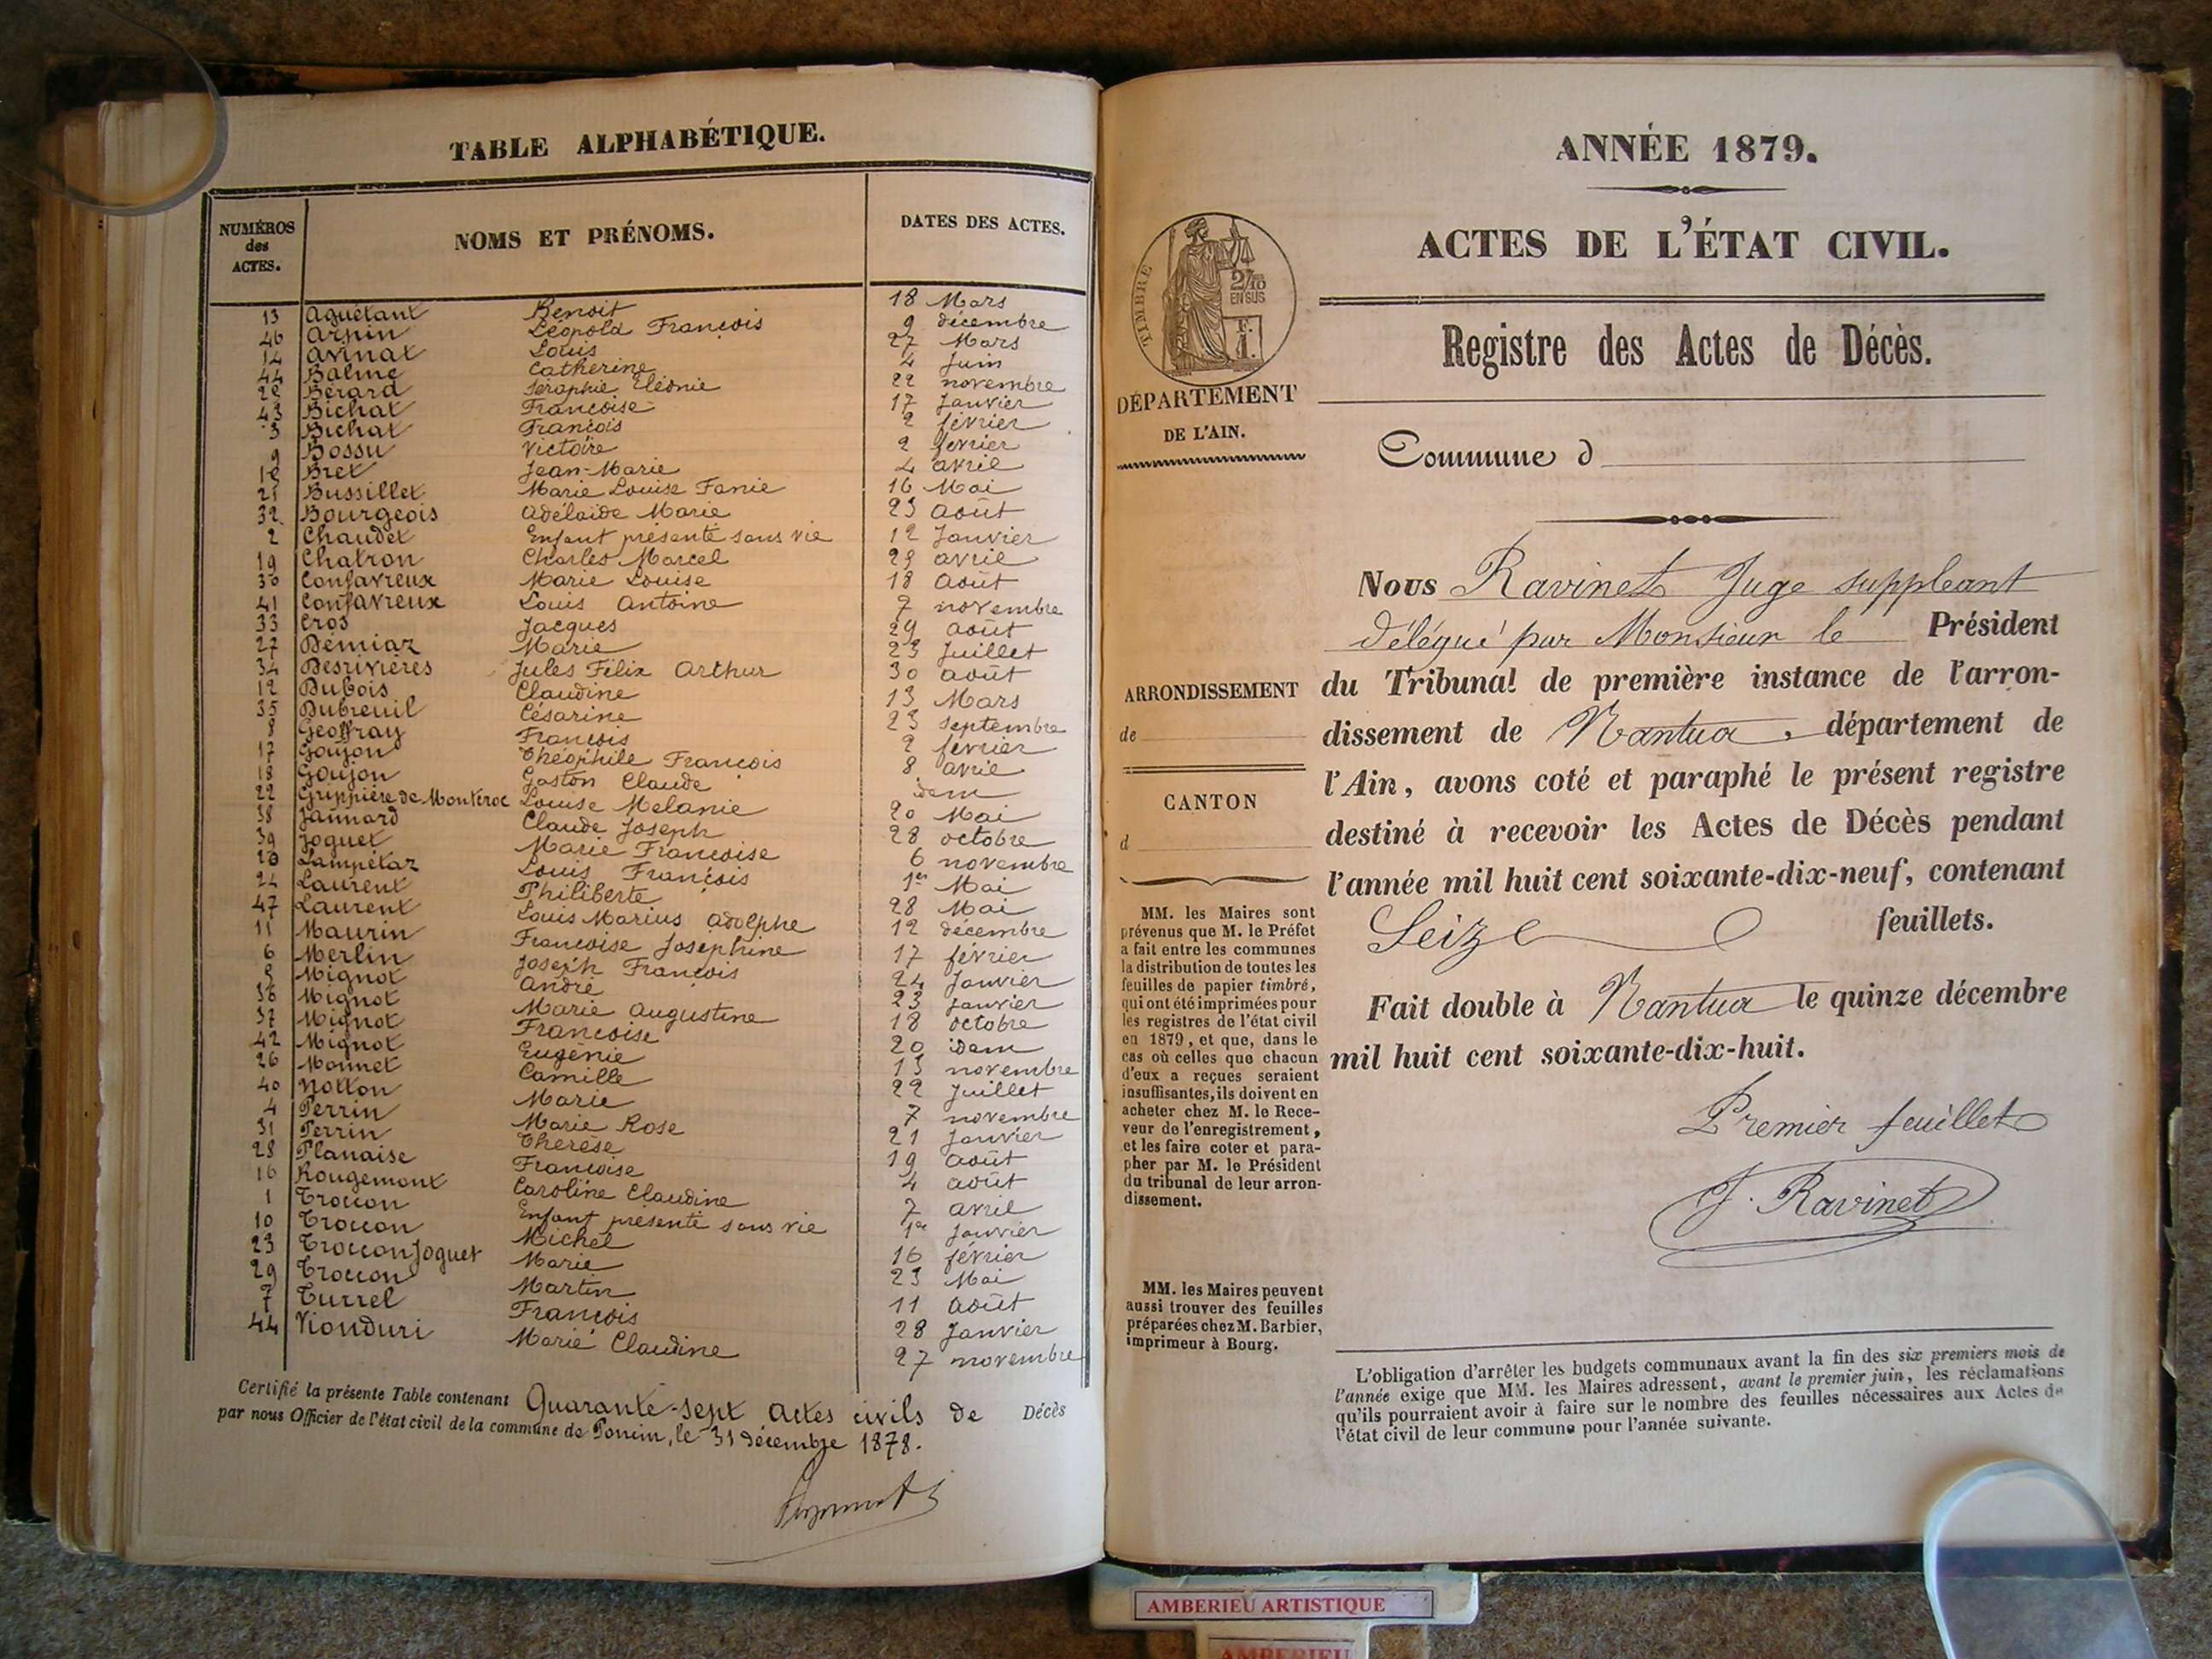 TABLE ALPHABÉTIQUE.
NUMÉROS des ACTES.
NOMS ET PRÉNOMS.
DATES DES ACTES.
13 Aguétant Benoit 18 Mars
46 Arpin Léopold François 9 décembre
14 Avinat Louis 27 Mars
44 Balme Catherine 4 Juin
Bérard Séraphie Eléonie 22 novembre
43 Bichat Françoise 17 Janvier
3 Bichat François 2 février
9 Bossu Victoire 2 février
Bret Jean-Marie 4 avril
21 Bussillet Marie Louise Fanie 16 Mai
32 Bourgeois Adélaïde Marie 23 août
2 Chaudet Enfant présenté sans vie 12 Janvier
19 Chatron Charles Marcel 29 avril
30 Confavreux Marie Louise 18 Août
41 Confavreux Louis Antoine 7 novembre
33 Cros Jacques 29 août
27 Démiaz Marie 23 Juillet
34 Desrivières Jules Félix Arthur 30 août
12 Dubois Claudine 13 Mars
35 Dubreuil Césarine 23 septembre
8 Geoffray François 2 février
17 Goujon Théophile François 8 avril
18 Goujon Gaston Claude idem
22 Grippière de Montéroc Louise Mélanie 20 Mai
38 Jannard Claude Joseph 28 octobre
39 Joguet Marie Françoise 6 novembre
20 Lampétaz Louis François 1er Mai
24 Laurent Philiberte 28 Mai
47 Laurent Louis Marius Adolphe 12 décembre
11 Maurin Françoise Joséphine 17 février
6 Merlin Joseph François 24 Janvier
5 Mignot André 23 Janvier
36 Mignot Marie Augustine 18 octobre
37 Mignot Françoise 20 idem
42 Mignot Eugénie 13 novembre
26 Monnet Camille 22 Juillet
40 Notton Marie 7 novembre
4 Perrin Marie Rose 21 Janvier
31 Perrin Thérèse 19 août
28 Planaise Françoise 4 août
16 Rougemont Caroline Claudine 7 avril
1 Troccon Enfant présenté sans vie 1er Janvier
10 Troccon Michel 16 février
23 Troccon Joguet Marie 23 Mai
29 Troccon Martin 11 Août
7 Turrel François 28 Janvier
44 Vionduri Marie Claudine 27 novembre
Certifié la présente Table contenant Quarante-sept actes civils de Décès
par nous Officier de l'état civil de la commune de Poncin, le 31 décembre 1878.
ANNÉE 1879.
ACTES DE L'ÉTAT CIVIL.
Registre des Actes de Décès.
TIMBRE
2/10
EN SUS
DÉPARTEMENT
DE L'AIN.
Commune d
Nous Ravinet Juge suppleant
délégué par Monsieur le Président
du Tribunal de première instance de l'arron-
dissement de Nantua, département de
l'Ain, avons coté et paraphé le présent registre
destiné à recevoir les Actes de Décès pendant
l'année mil huit cent soixante-dix-neuf, contenant
Seize feuillets.
Fait double à Nantua le quinze décembre
mil huit cent soixante-dix-huit.
Premier feuillet
J. Ravinet
ARRONDISSEMENT
de
CANTON
d
MM. les Maires sont
prévenus que M. le Préfet
a fait entre les communes
la distribution de toutes les
feuilles de papier timbré,
qui ont été imprimées pour
les registres de l'état civil
en 1879, et que, dans le
cas où celles que chacun
d'eux a reçues seraient
insuffisantes, ils doivent en
acheter chez M. le Rece-
veur de l'enregistrement,
et les faire coter et para-
pher par M. le Président
du tribunal de leur arron-
dissement.
MM. les Maires peuvent
aussi trouver des feuilles
préparées chez M. Barbier,
imprimeur à Bourg.
L'obligation d'arrêter les budgets communaux avant la fin des six premiers mois de
l'année exige que MM. les Maires adressent, avant le premier juin, les réclamations
qu'ils pourraient avoir à faire sur le nombre des feuilles nécessaires aux Actes de
l'état civil de leur commune pour l'année suivante.
AMBERIEU ARTISTIQUE
AMBERIEU